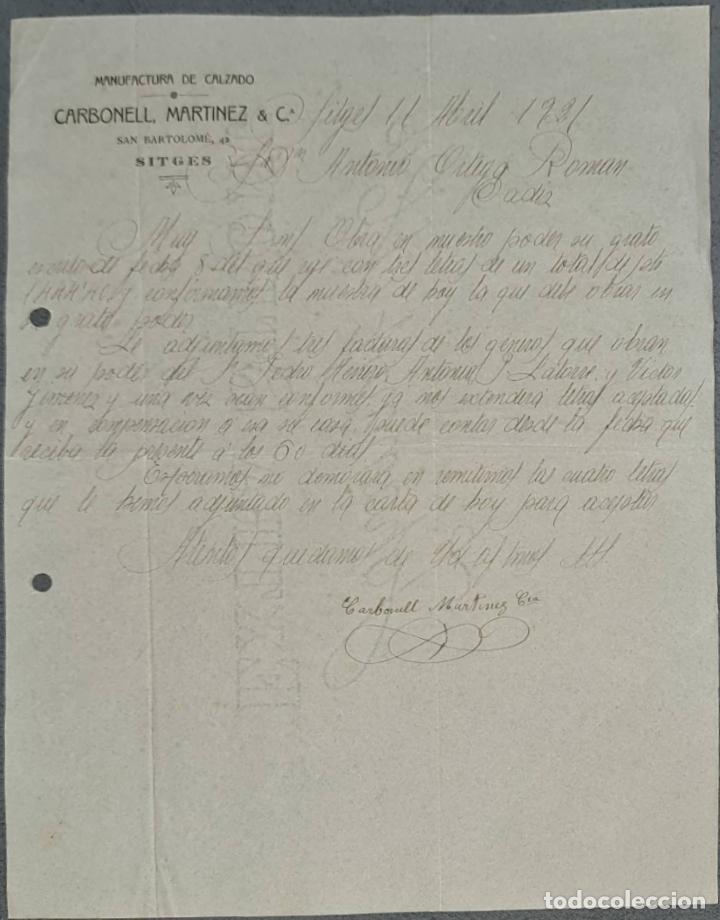 MANUFACTURA DE CALZADO
CARBONELL, MARTINEZ & C.ª
SAN BARTOLOMÉ, 42
SITGES
Sitges 11 Abril 1921
Sr Dn Antonio Ortega Roman
Cadiz
Muy Sr ns Obra en nuestro poder su grato
escrito de fecha 8 del que rige con tres letras de un total de pts
y conformamos la nuestra de hoy la que debe obrar en
su grato poder
Le adjuntamos tres facturas de los generos que obran
en su poder del Sr Pedro Antonio P. Latorre y Victor
Jimenez y una vez sean conformes ya nos extendera letras aceptadas
y en compensacion a esa su casa puede contar desde la fecha que
reciba la presente á los 60 dias
Esperamos no demorara en remitirnos las cuatro letras
que le hemos adjuntado en la carta de hoy para aceptar
Atentos quedamos de Vd af SS
Carbonell Martinez Cia
todocoleccion